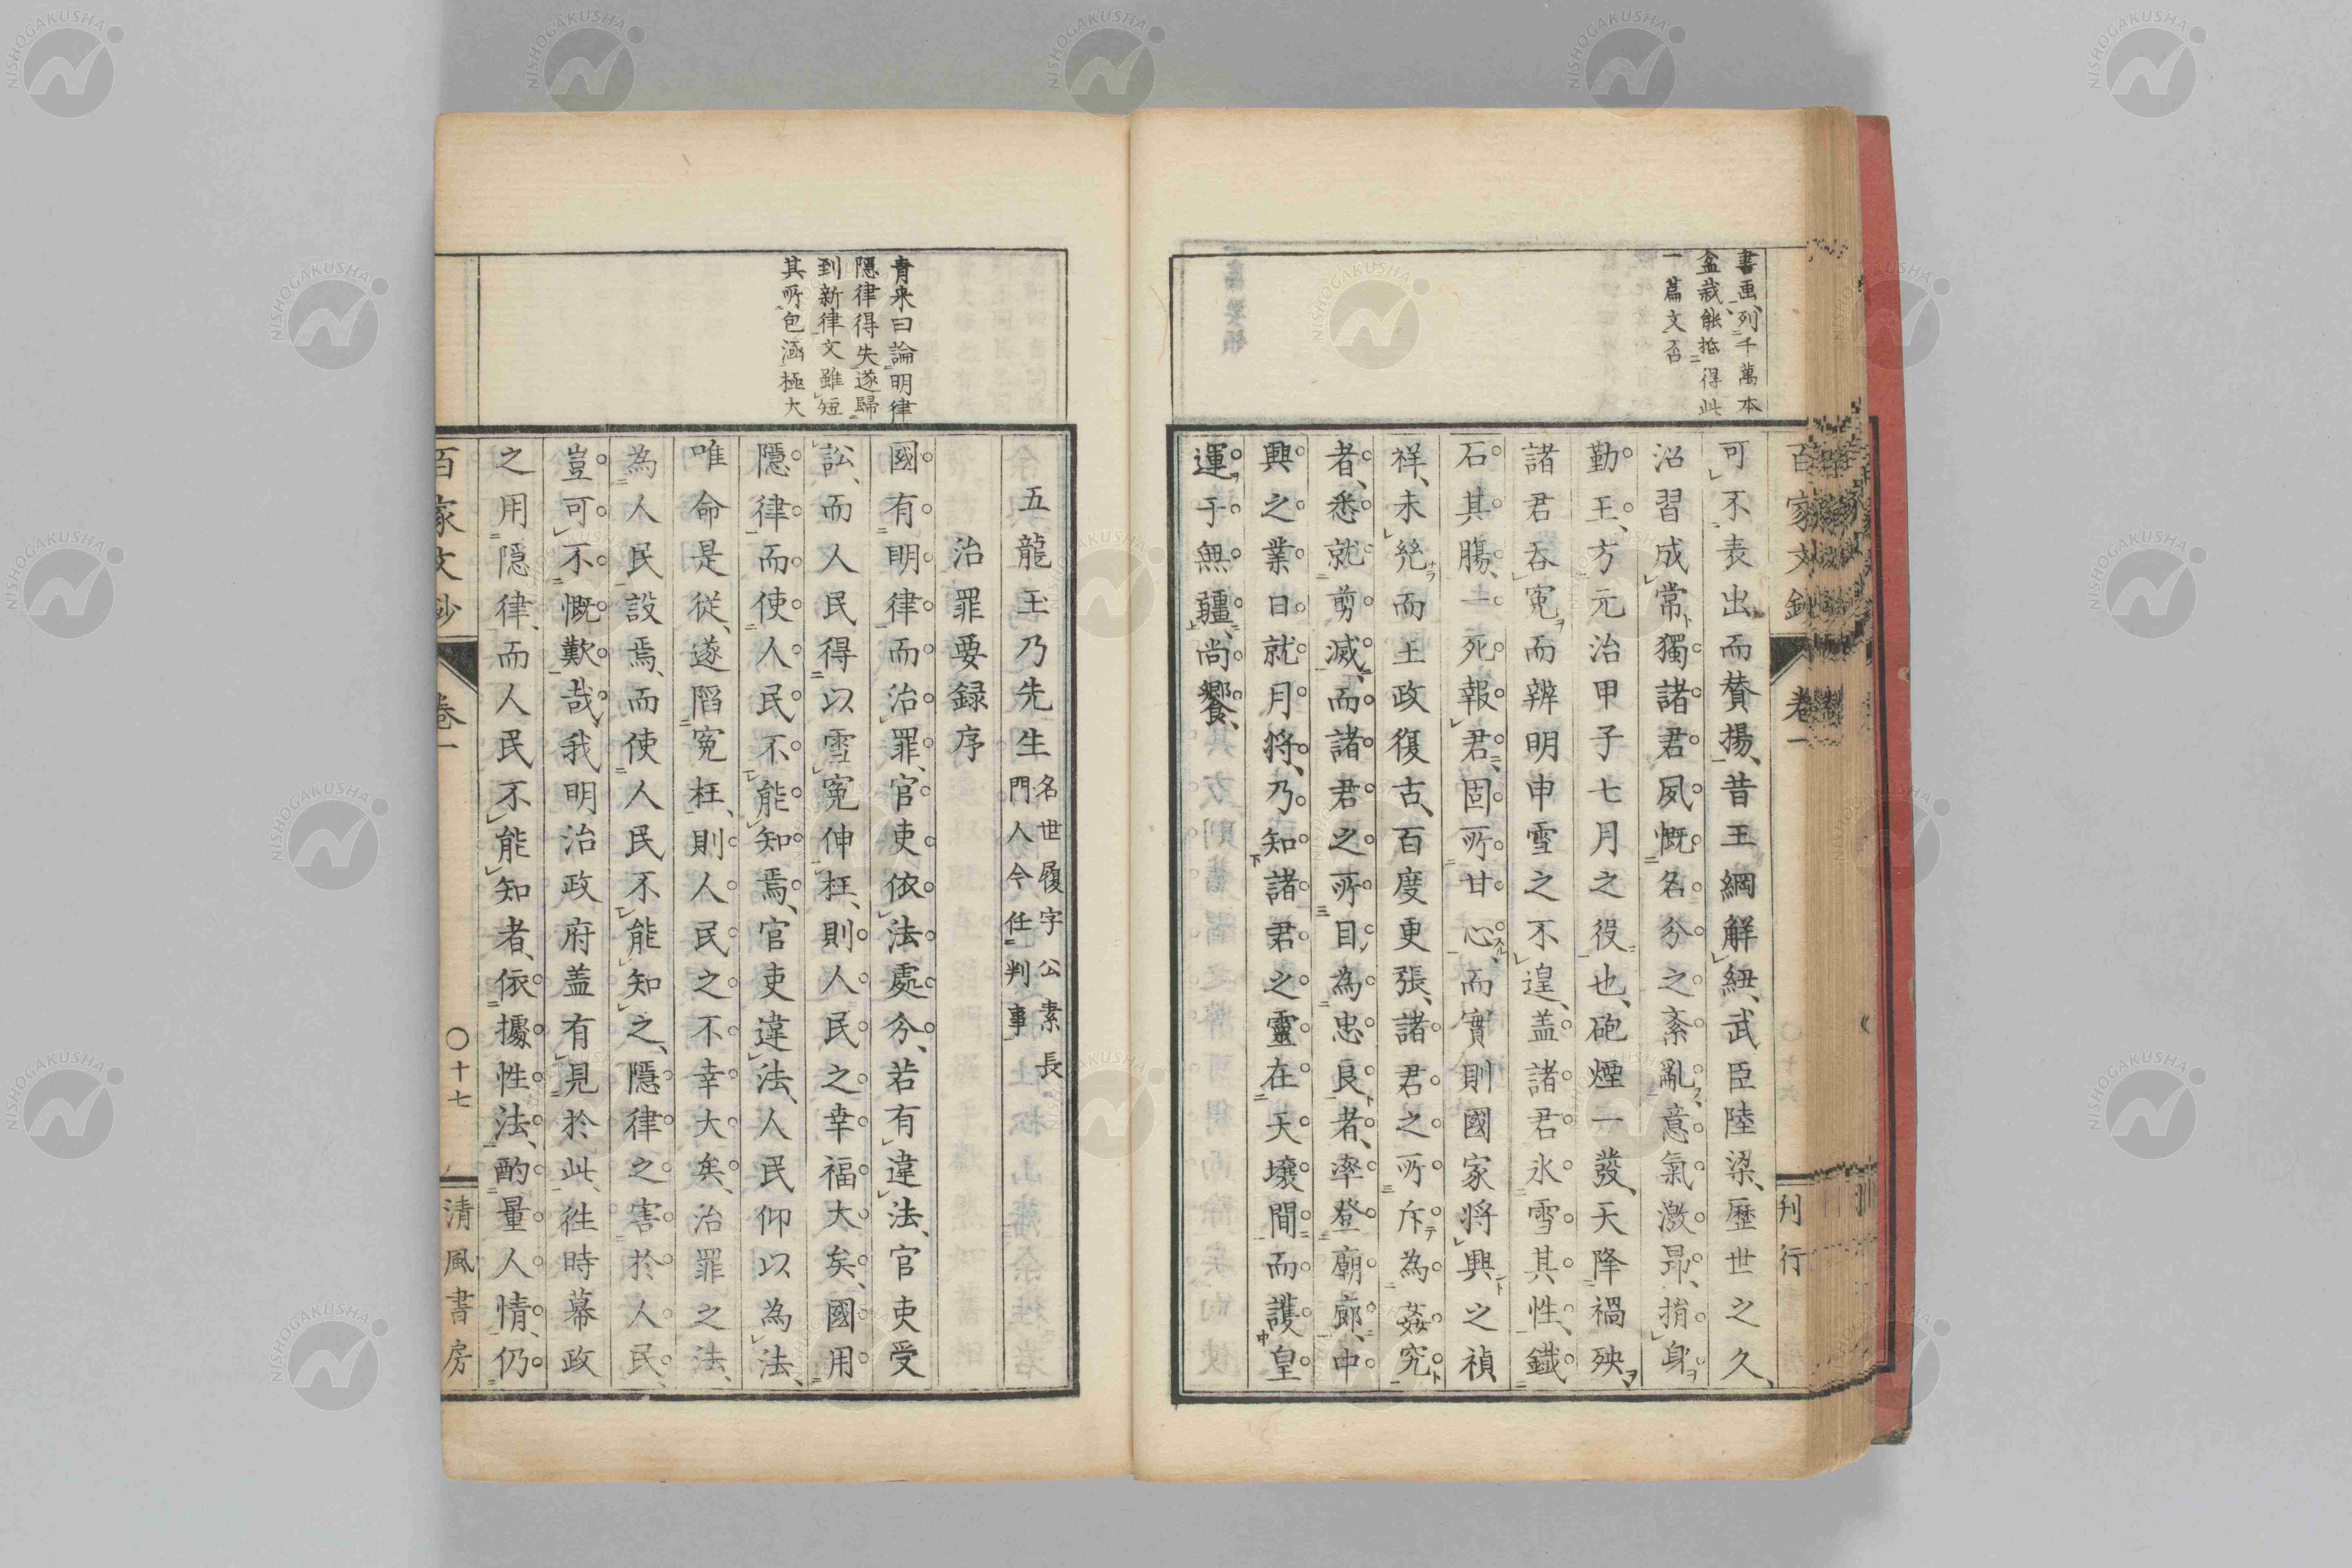 書画列千萬本
盆栽能抵得此
一篇文否
百家文鈔
卷一
刊行
可不表出而賛揚、昔王綱解紐、武臣陸梁、歷世之久、
沿習成常獨諸君夙慨名分之紊亂意氣激昂、捐身
勤王、方元治甲子七月之役也、砲煙一發、天降禍殃
諸君呑寃而辨明申雪之不遑、盖諸君氷雪其性、鐵
石其膓、一死報君、固所甘心、而實則國家將興之禎
祥、未兊而王政復古、百度更張、諸君之所斥為姦究
者、悉就剪滅、而諸君之所目為忠良者、率登廟廊、中
興之業日就月將、乃知諸君之靈在天壌間而護皇
運于無疆、尚饗、
青来曰論明律
隠律得失遂歸
到新律文雖短
其所包涵極大
五龍王乃先生名世履字公素長
門人今任判事
治罪要録序
國有明律而治罪、官吏依法處分、若有違法、官吏受
訟、而人民得以雪寃伸枉、則人民之幸福大矣、國用
隱律而使人民不能知焉、官吏違法、人民仰以為法、
唯命是從、遂陷寃枉、則人民之不幸大矣、治罪之法、
為人民設焉、而使人民不能知之、隱律之害於人民、
豈可不慨歎哉、我明治政府盖有見於此、徃時幕政
之用隠律、而人民不能知者、依據性法、酌量人情、仍
百家文鈔
卷一
〇十七
清風書房
NISHOGAKUSHA